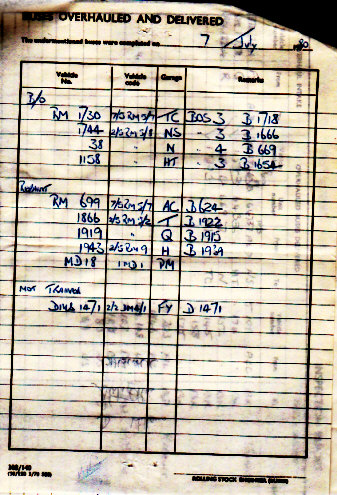 BUSES OVERHAULED AND DELIVERED
The undermentioned buses were completed on 7 July 1980
Vehicle No. Vehicle code Garage Remarks
B/O
RM 1730 7/5RM5/7 TC BOS 3 B 1718
1744 2/5RM5/8 NS " 3 B 1666
38 " N " 4 B 669
1158 " HT " 3 B 1654
REPAINT
RM 699 7/5RM5/7 AC B 624
1866 T B 1922
1919 " Q B 1915
1943 2/5RM9 H
MD 18 1MD1 PM
NOT
1471 FY D 1471
ROLLING STOCK ENGINEER (BUSES)